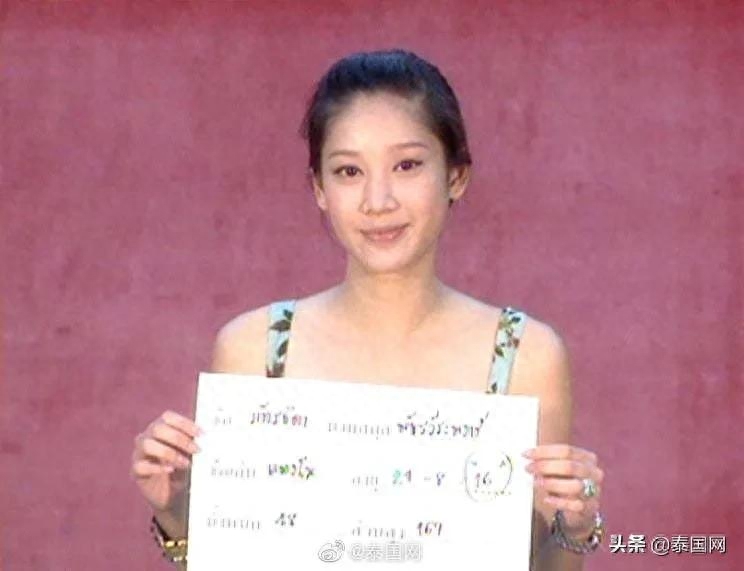 ชื่อ ภัทรธิดา นามสกุล พัชรวีระพงษ์
ชื่อเล่น แตงโม อายุ -8 16
น้ำหนัก 48 ส่วนสูง
@泰国网
头条 @泰国网